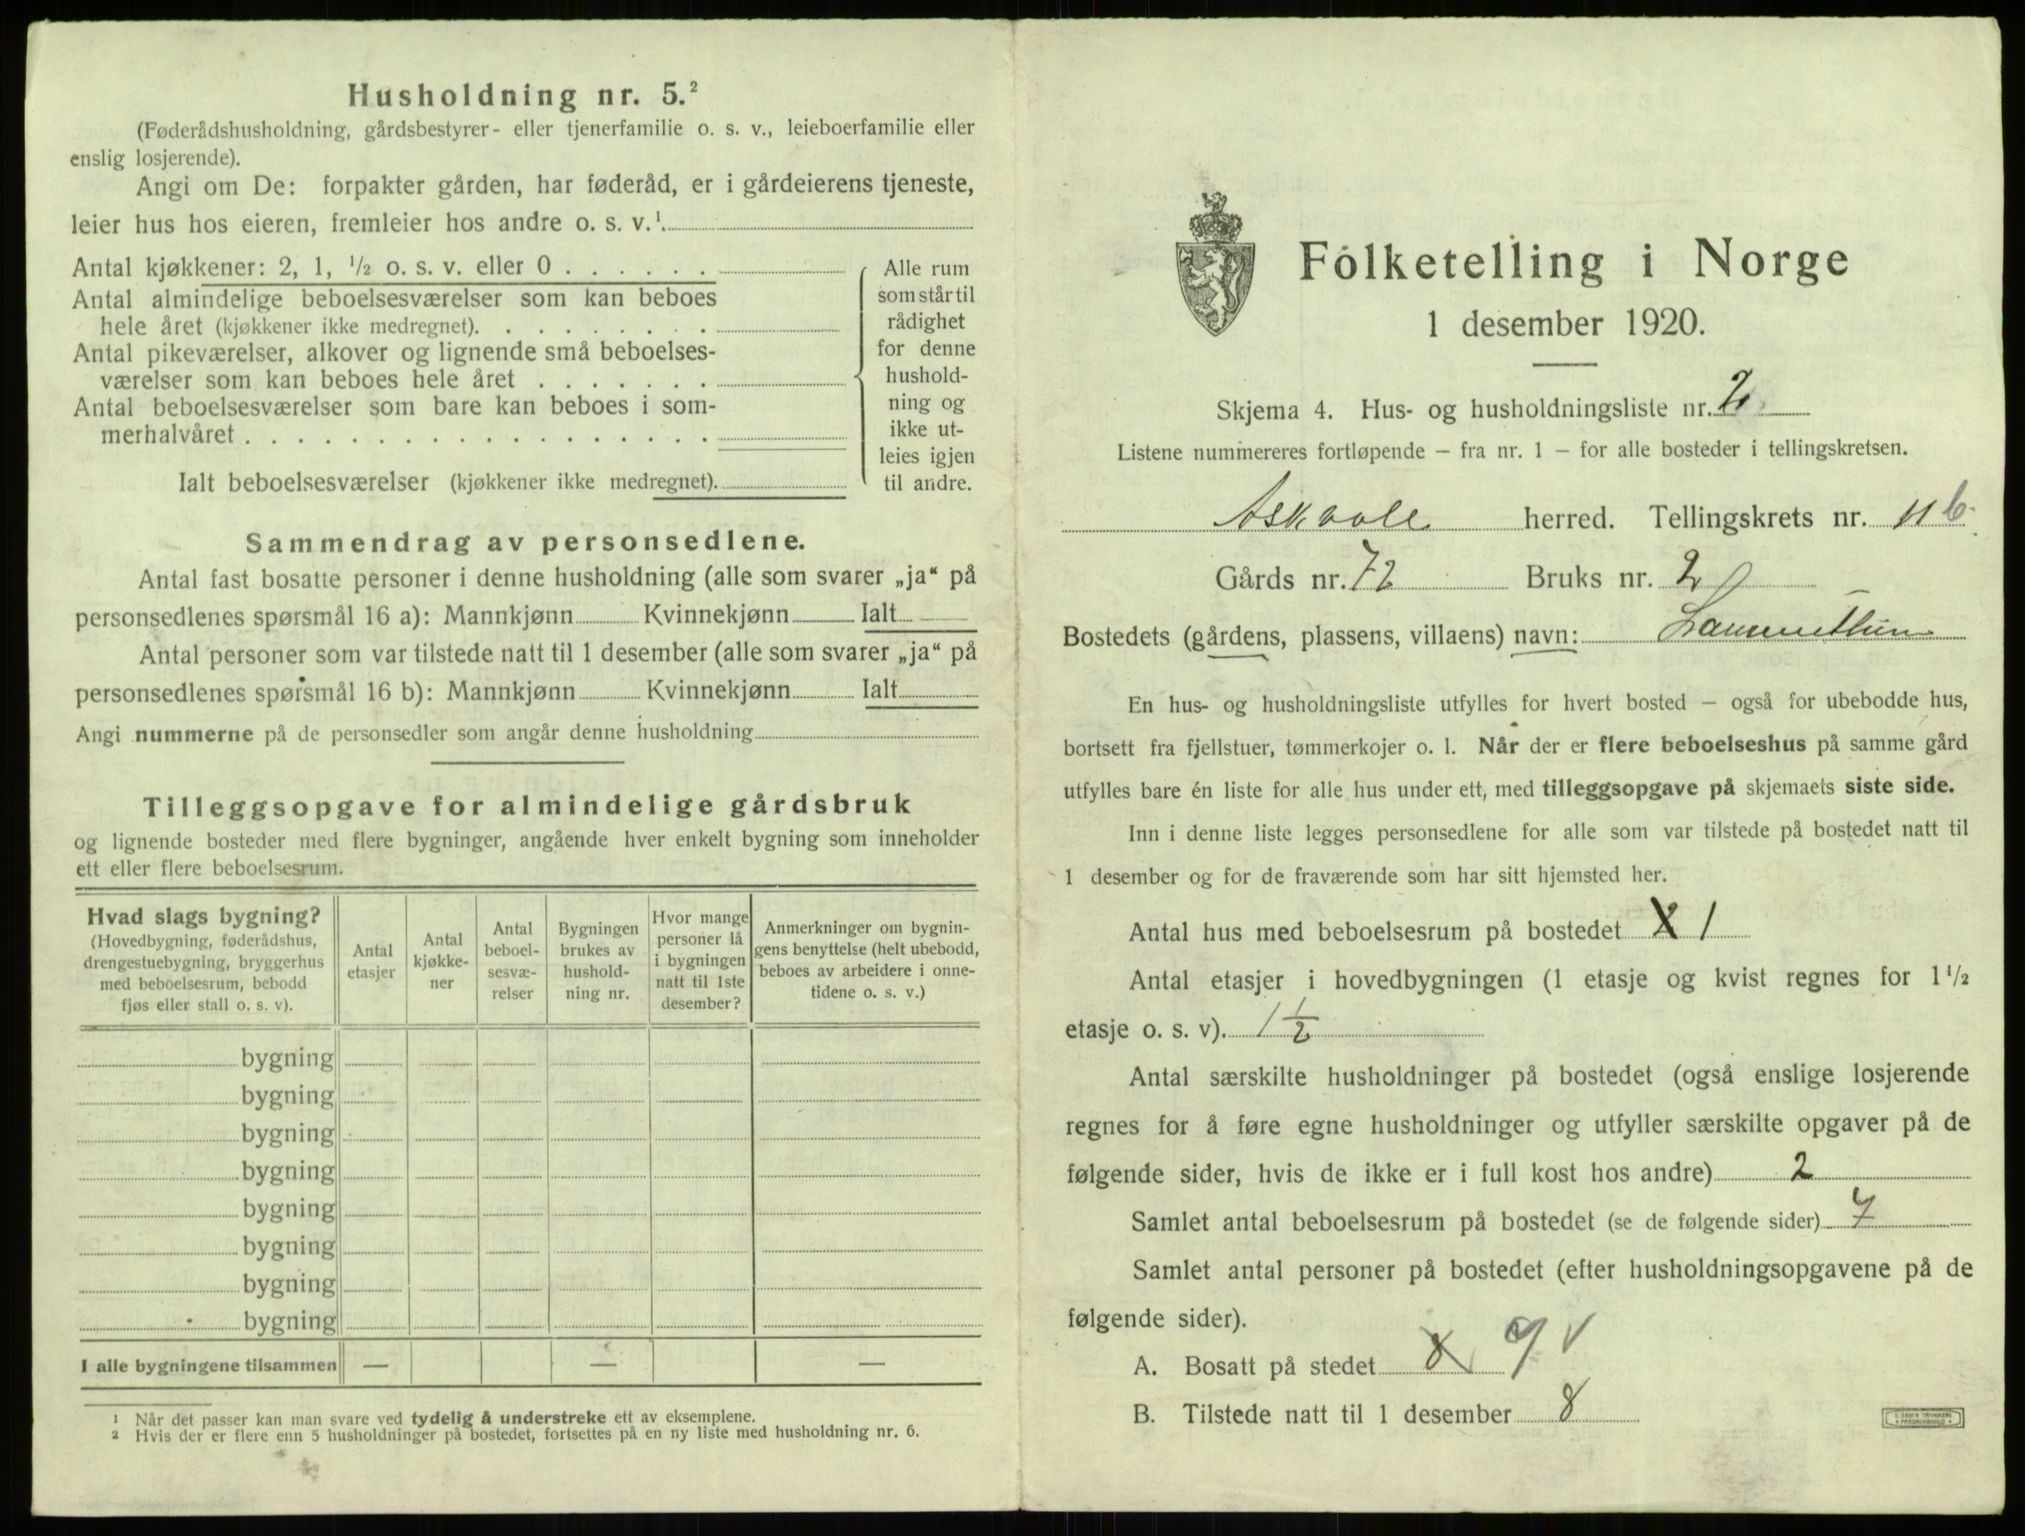 Husholdning nr. 5.²
(Føderådshusholdning, gårdsbestyrer- eller tjenerfamilie o. s. v., leieboerfamilie eller
enslig losjerende).
Angi om De: forpakter gården, har føderåd, er i gårdeierens tjeneste,
leier hus hos eieren, fremleier hos andre o. s. v.¹
Antal kjøkkener: 2, 1, ½ o. s. v. eller 0
Antal almindelige beboelsesværelser som kan beboes
hele året (kjøkkener ikke medregnet).
Antal pikeværelser, alkover og lignende små beboelses-
værelser som kan beboes hele året
Antal beboelsesværelser som bare kan beboes i som-
merhalvåret
Ialt beboelsesværelser (kjøkkener ikke medregnet).
Alle rum
som står til
rådighet
for denne
hushold-
ning og
ikke ut-
leies igjen
til andre.
Sammendrag av personsedlene.
Antal fast bosatte personer i denne husholdning (alle som svarer „ja“ på
personsedlenes spørsmål 16 a): Mannkjønn Kvinnekjønn Ialt
Antal personer som var tilstede natt til 1 desember (alle som svarer „ja“ på
personsedlenes spørsmål 16 b): Mannkjønn Kvinnekjønn Ialt
Angi nummerne på de personsedler som angår denne husholdning
Tilleggsopgave for almindelige gårdsbruk
og lignende bosteder med flere bygninger, angående hver enkelt bygning som inneholder
ett eller flere beboelsesrum.
Hvad slags bygning?
(Hovedbygning, føderådshus,
drengestuebygning, bryggerhus
med beboelsesrum, bebodd
fjøs eller stall o. s. v).
Antal
etasjer
Antal
kjøkke-
ner
Antal
beboel-
sesvæ-
relser
Bygningen
brukes av
hushold-
ning nr.
Hvor mange
personer lå
i bygningen
natt til 1ste
desember?
Anmerkninger om bygnin-
gens benyttelse (helt ubebodd,
beboes av arbeidere i onne-
tidene o. s. v.)
bygning
bygning
bygning
bygning
bygning
bygning
bygning
bygning
I alle bygningene tilsammen — — —
¹ Når det passer kan man svare ved tydelig å understreke ett av eksemplene.
² Hvis der er flere enn 5 husholdninger på bostedet, fortsettes på en ny liste med husholdning nr. 6.
Folketelling i Norge
1 desember 1920.
Skjema 4. Hus- og husholdningsliste nr. 2
Listene nummereres fortløpende – fra nr. 1 – for alle bosteder i tellingskretsen.
Askvoll herred. Tellingskrets nr. 11 b.
Gårds nr. 72 Bruks nr. 2
Bostedets (gårdens, plassens, villaens) navn:
En hus- og husholdningsliste utfylles for hvert bosted – også for ubebodde hus,
bortsett fra fjellstuer, tømmerkojer o. l. Når der er flere beboelseshus på samme gård
utfylles bare én liste for alle hus under ett, med tilleggsopgave på skjemaets siste side.
Inn i denne liste legges personsedlene for alle som var tilstede på bostedet natt til
1 desember og for de fraværende som har sitt hjemsted her.
Antal hus med beboelsesrum på bostedet 1
Antal etasjer i hovedbygningen (1 etasje og kvist regnes for 1½
etasje o. s. v). 1½
Antal særskilte husholdninger på bostedet (også enslige losjerende
regnes for å føre egne husholdninger og utfyller særskilte opgaver på de
følgende sider, hvis de ikke er i full kost hos andre) 2
Samlet antal beboelsesrum på bostedet (se de følgende sider) 7
Samlet antal personer på bostedet (efter husholdningsopgavene på de
følgende sider).
A. Bosatt på stedet 8 9 v
B. Tilstede natt til 1 desember 8